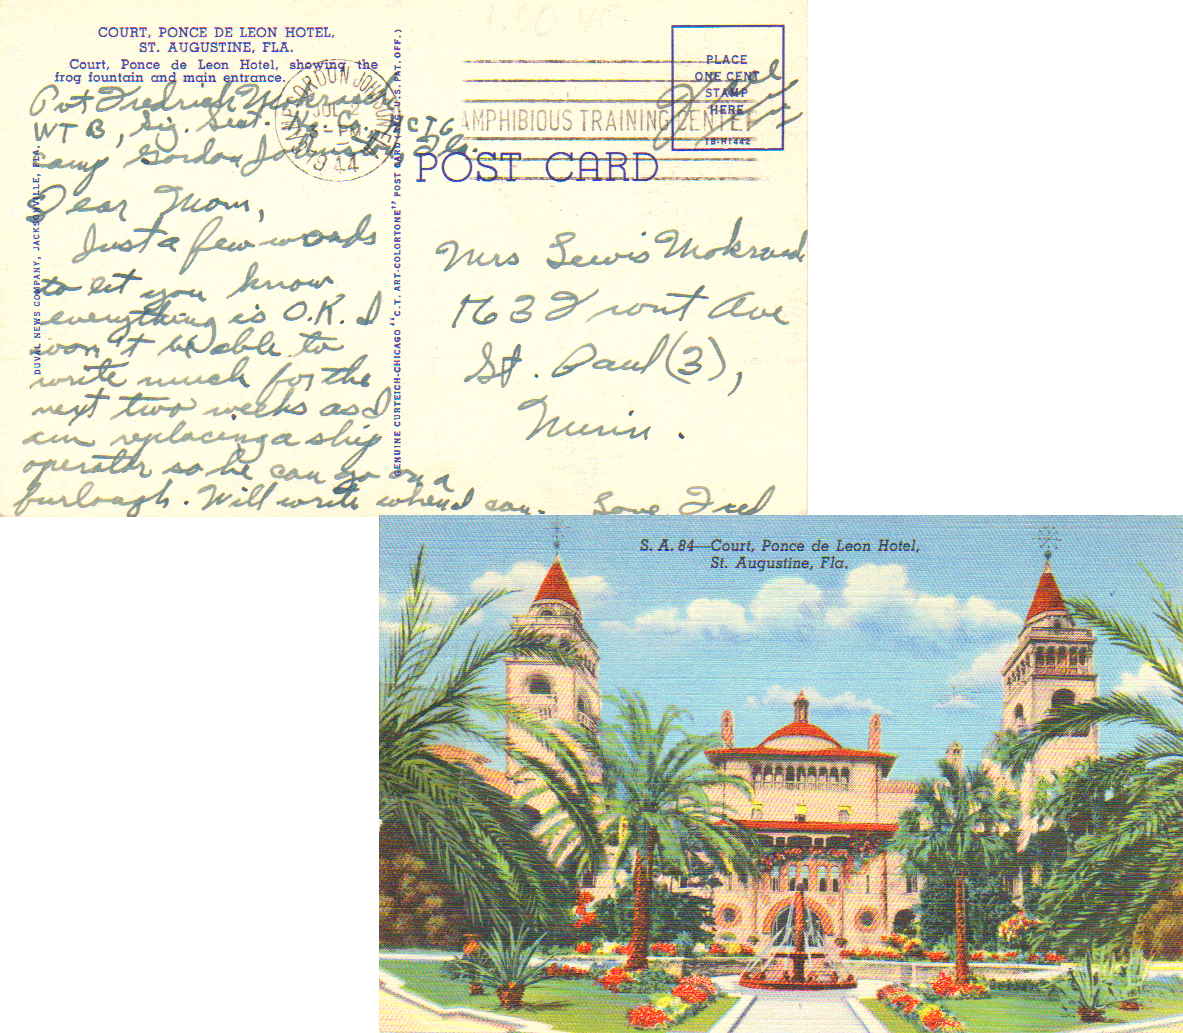 COURT, PONCE DE LEON HOTEL,
ST. AUGUSTINE, FLA.
Court, Ponce de Leon Hotel, showing the
frog fountain and main entrance.
Pvt Fredrich Mokrasch
WTB, Sig. Sect. Hq. Co. ACTC
Camp Gordon Johnston Fla.
Dear Mom,
Just a few words
to let you know
everything is O.K. I
won't be able to
write much for the
next two weeks as I
am replacing a ship
operator so he can go on a
furlough. Will write when I can. Love Fred
DUVAL NEWS COMPANY, JACKSONVILLE, FLA.
GENUINE CURTEICH-CHICAGO "C.T. ART-COLORTONE" POST CARD (REG. U.S. PAT. OFF.)
CAMP GORDON JOHNSTON
JUL 2
3 - PM
1944
AMPHIBIOUS TRAINING CENTER
PLACE
ONE CENT
STAMP
HERE
1B-H1442
Free
POST CARD
Mrs Lewis Mokrasch
763 Front Ave
St. Paul (3),
Minn.
S. A. 84—Court, Ponce de Leon Hotel,
St. Augustine, Fla.